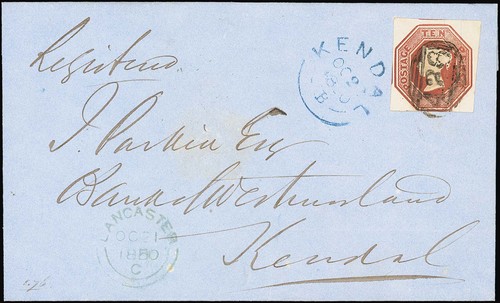 Registered
J. Parkin Esq
Bank of Westmorland
Kendal
KENDAL
OC 20
B
POSTAGE TEN
LANCASTER
OC 21
1850
C